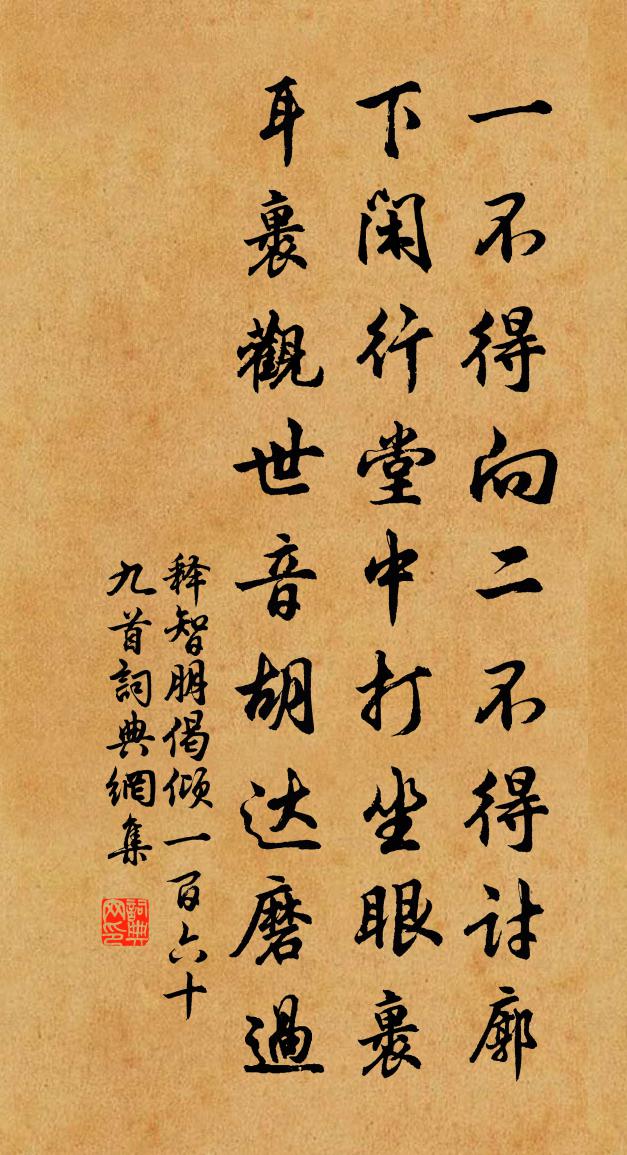 一不得向二不得討廓
下閑行堂中打坐眼裏
耳裏觀世音胡达磨過
释智朋偈倾一百六十
九首詞典網集
詞典网印